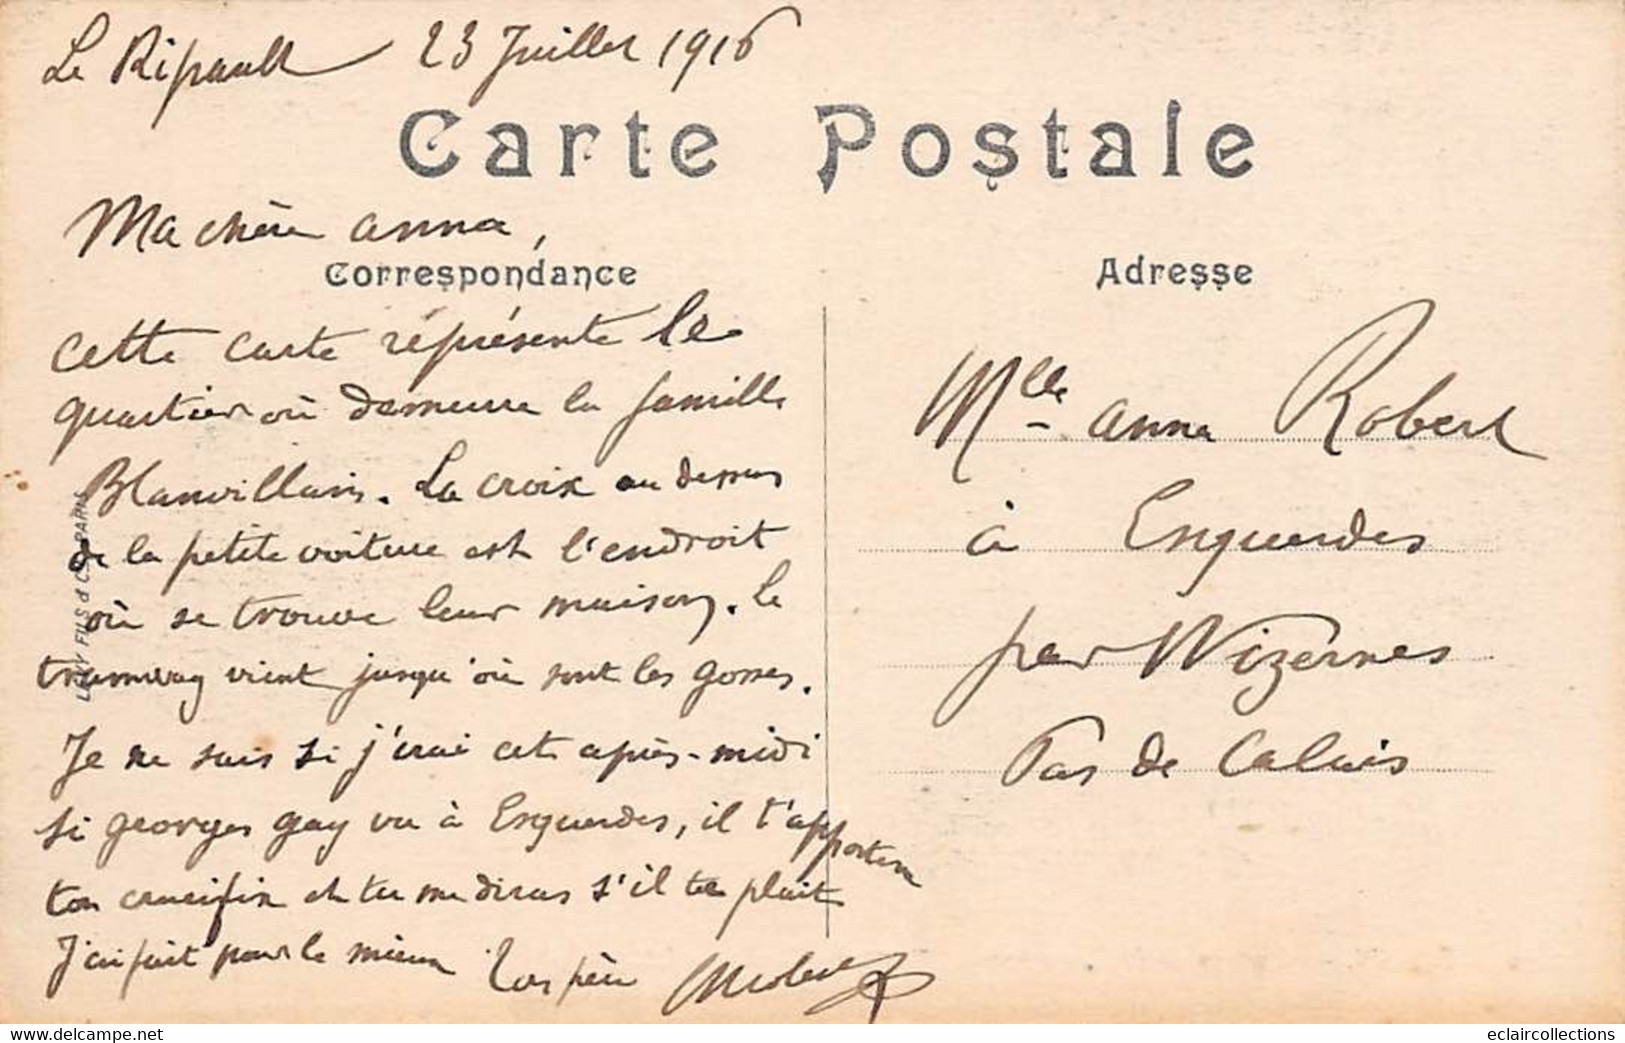 Le Ripault 23 Juillet 1916
Carte Postale
Ma chère anna,
Correspondance
cette carte représente le
quartier où demeure la famille
Blanvillain. La croix au dessus
de la petite voiture est l'endroit
où se trouve leur maison. Le
tramway vient jusqu'où sont les gosses.
Je ne sais si j'irai cet après-midi
si georges gay va à Esquerdes, il t'apportera
ton crucifix et tu me diras s'il te plait
J'ai fait pour le mieux Ton père
LEVY FILS & Cie PARIS
Adresse
Mlle anna Robert
à Esquerdes
par Wizernes
Pas de Calais
www.delcampe.net
eclaircollections